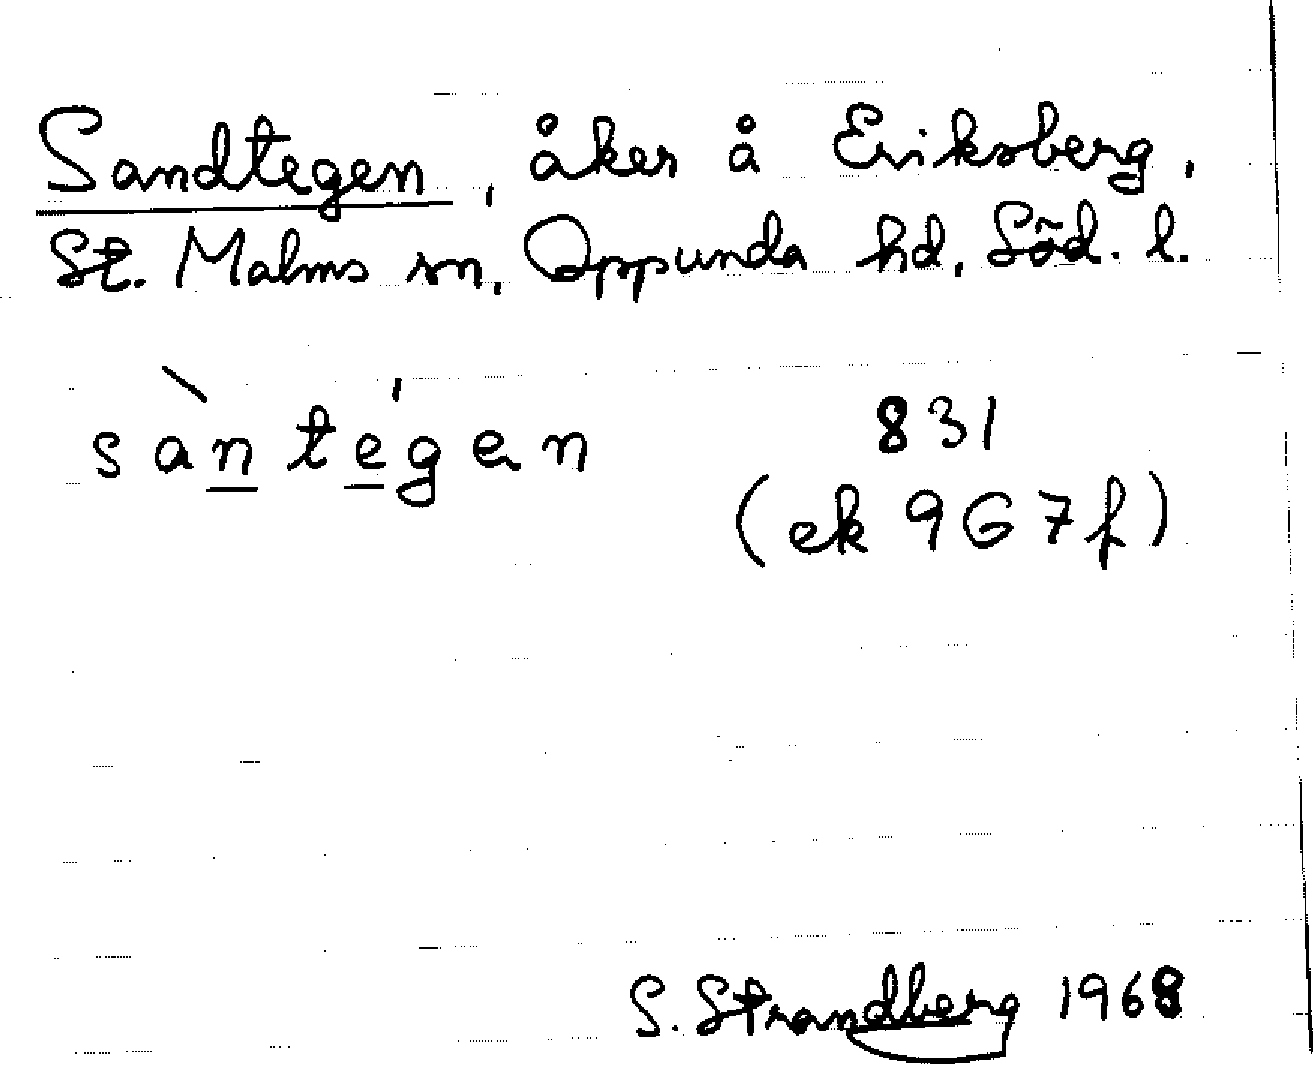 Sandtegen, åker å Eriksberg,
St. Malms sn, Oppunda hd, Söd. l.
sàntégen
831
(ek 9G7f)
S. Strandberg 1968